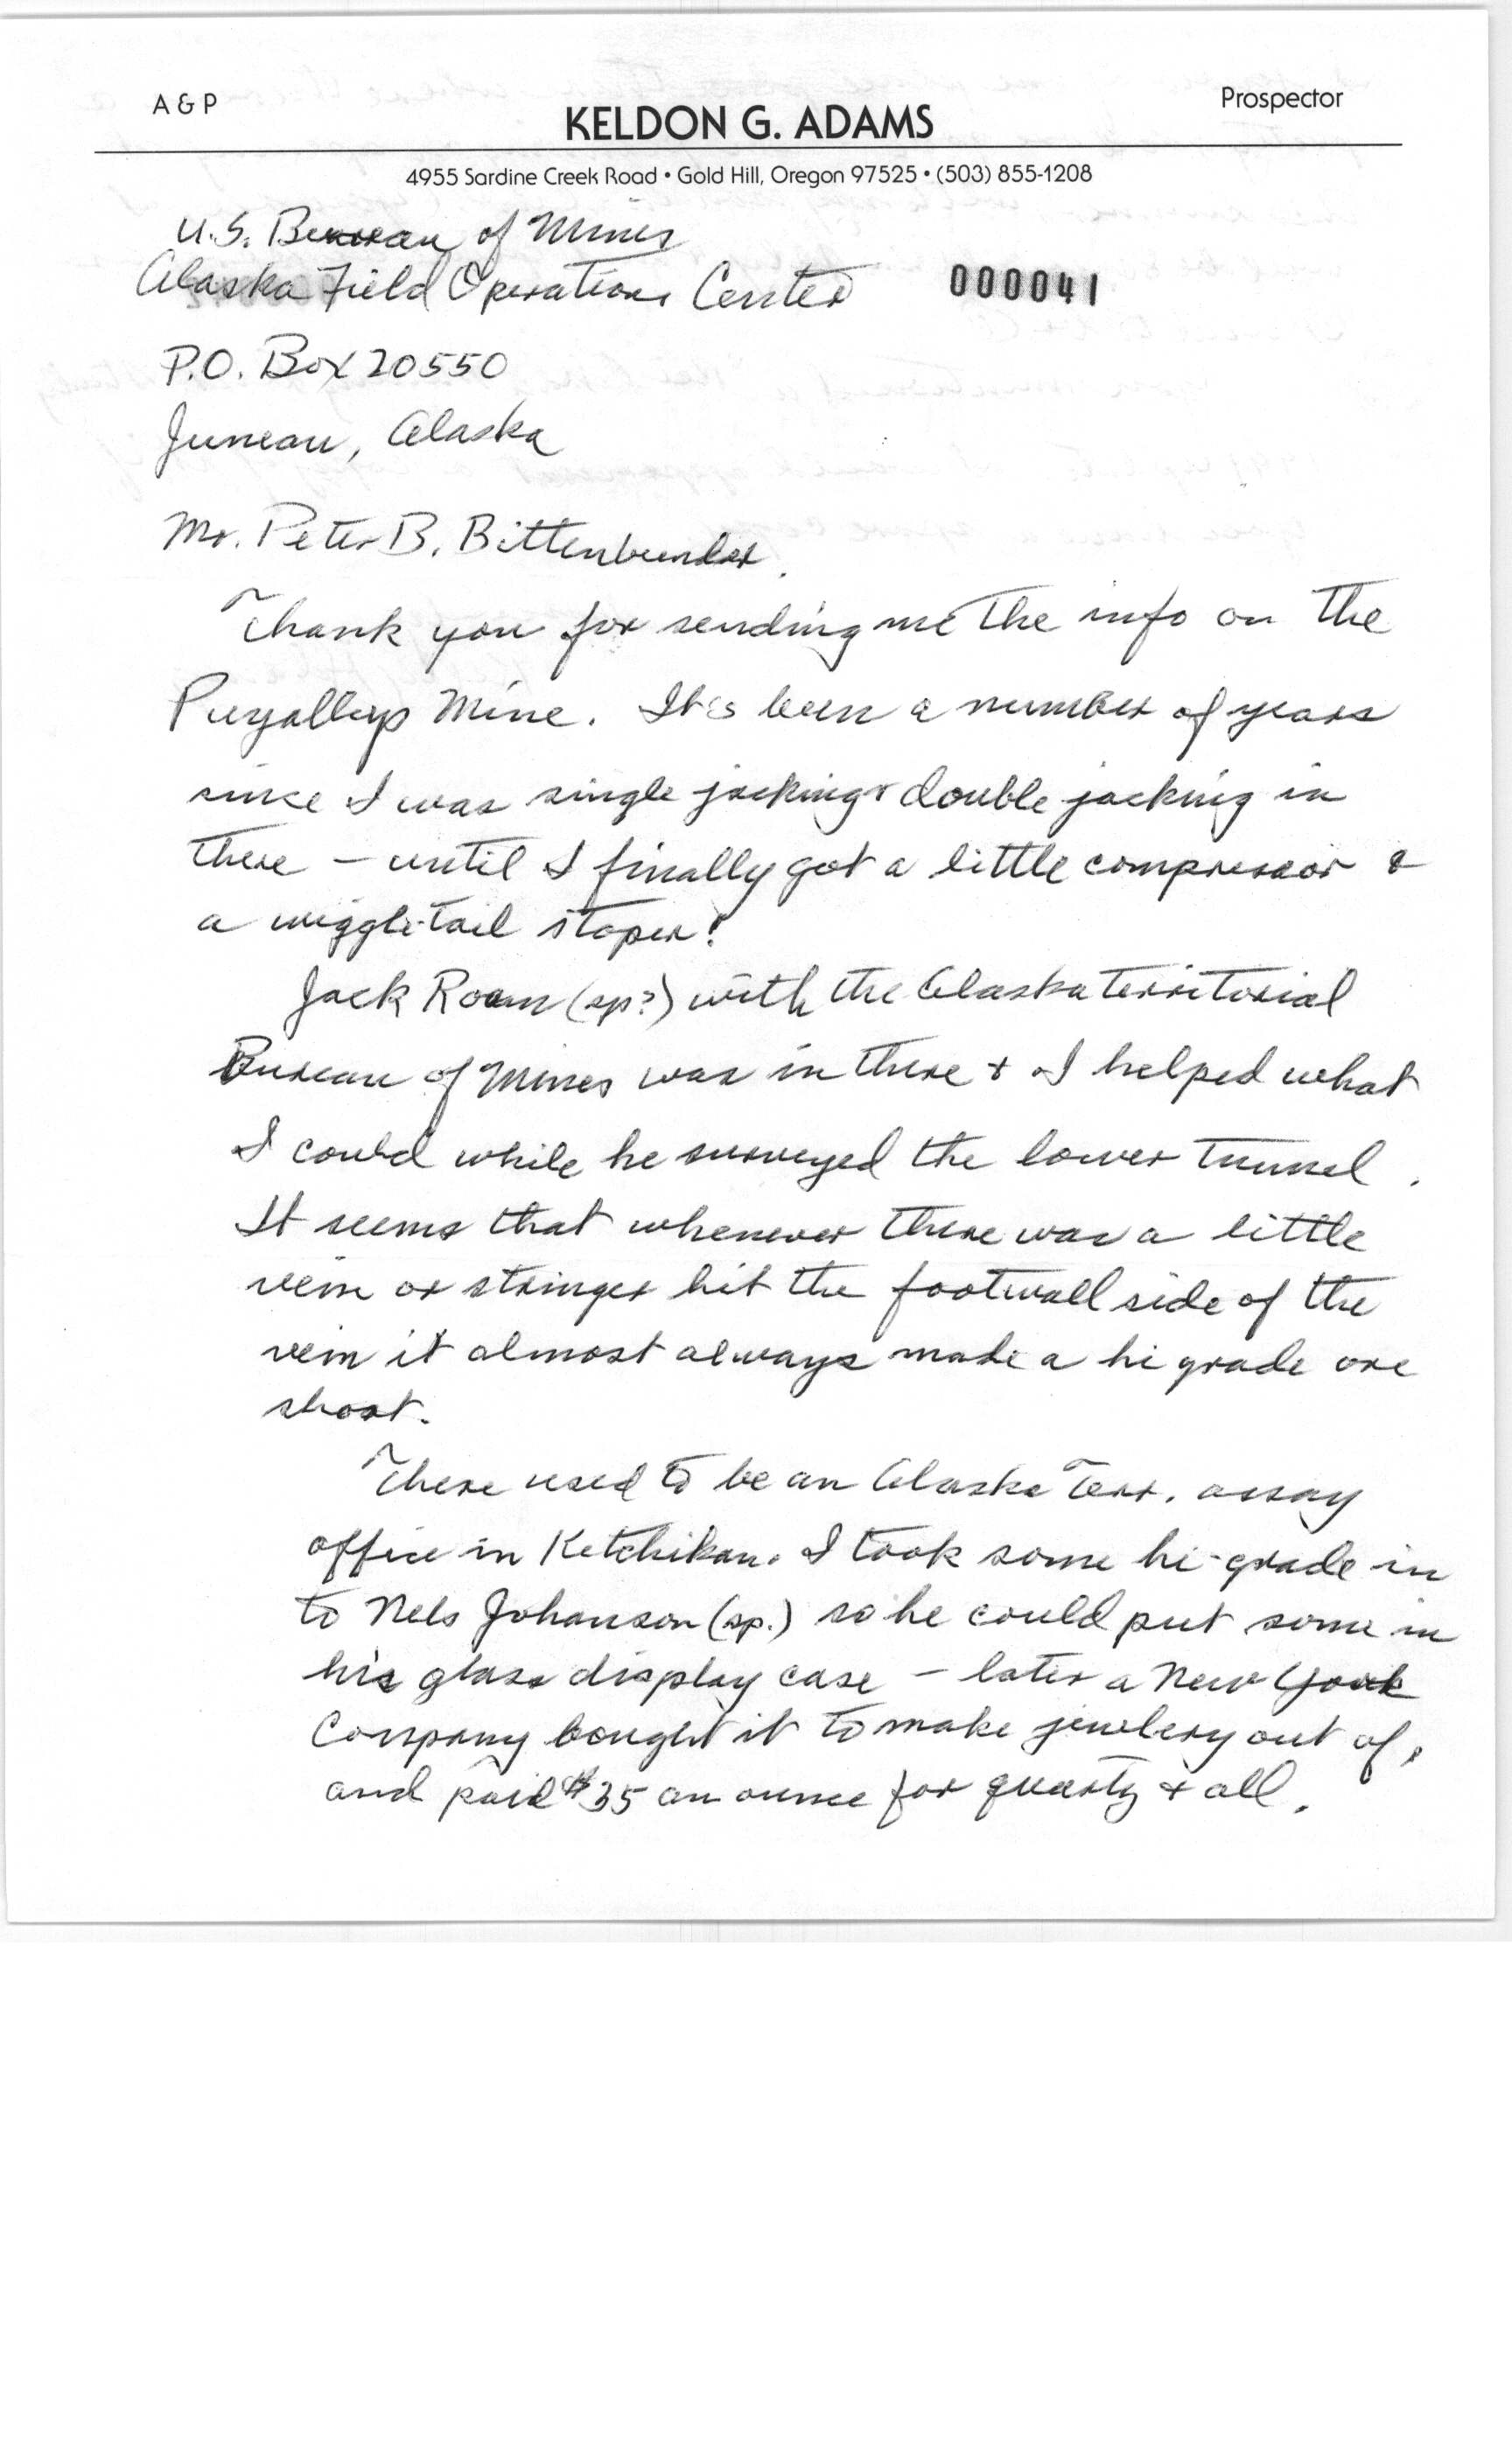 A & P
Prospector
KELDON G. ADAMS
4955 Sardine Creek Road • Gold Hill, Oregon 97525 • (503) 855-1208
U.S. Bureau of Mines
Alaska Field Operations Center
000041
P.O. Box 20550
Juneau, Alaska
Mr. Peter B. Bittenbender.
Thank you for sending me the info on the
Puyallup Mine. It's been a number of years
since I was single jacking & double jacking in
there – until I finally got a little compressor &
a wiggle-tail stoper!
Jack Roan (sp?) with the Alaska territorial
Bureau of Mines was in there + I helped what
I could while he surveyed the lower tunnel.
It seems that whenever there was a little
vein or stringer hit the footwall side of the
vein it almost always made a hi grade ore
shoot.
There used to be an Alaska Terr. assay
office in Ketchikan. I took some hi-grade in
to Nels Johanson (sp.) so he could put some in
his glass display case – later a New York
Company bought it to make jewlery out of,
and paid $35 an ounce for quartz + all.